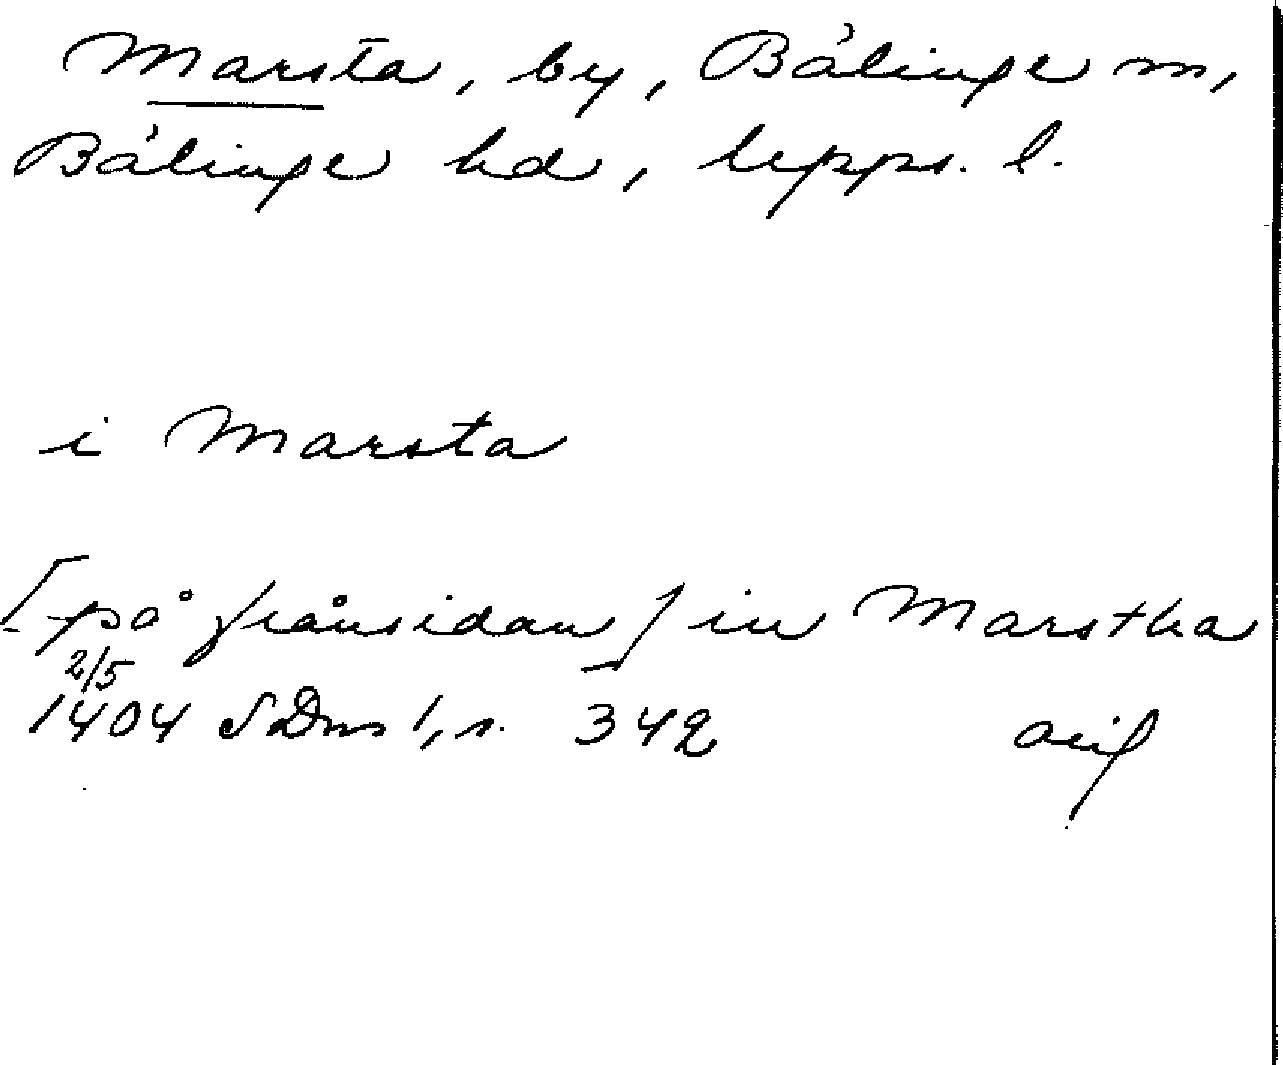 Marsta, by, Bälinge sn,
Bälinge hd, Upps. l.
i Marsta
[på frånsidan] in Marstha
2/5
1404 SDns 1, s. 342 avif